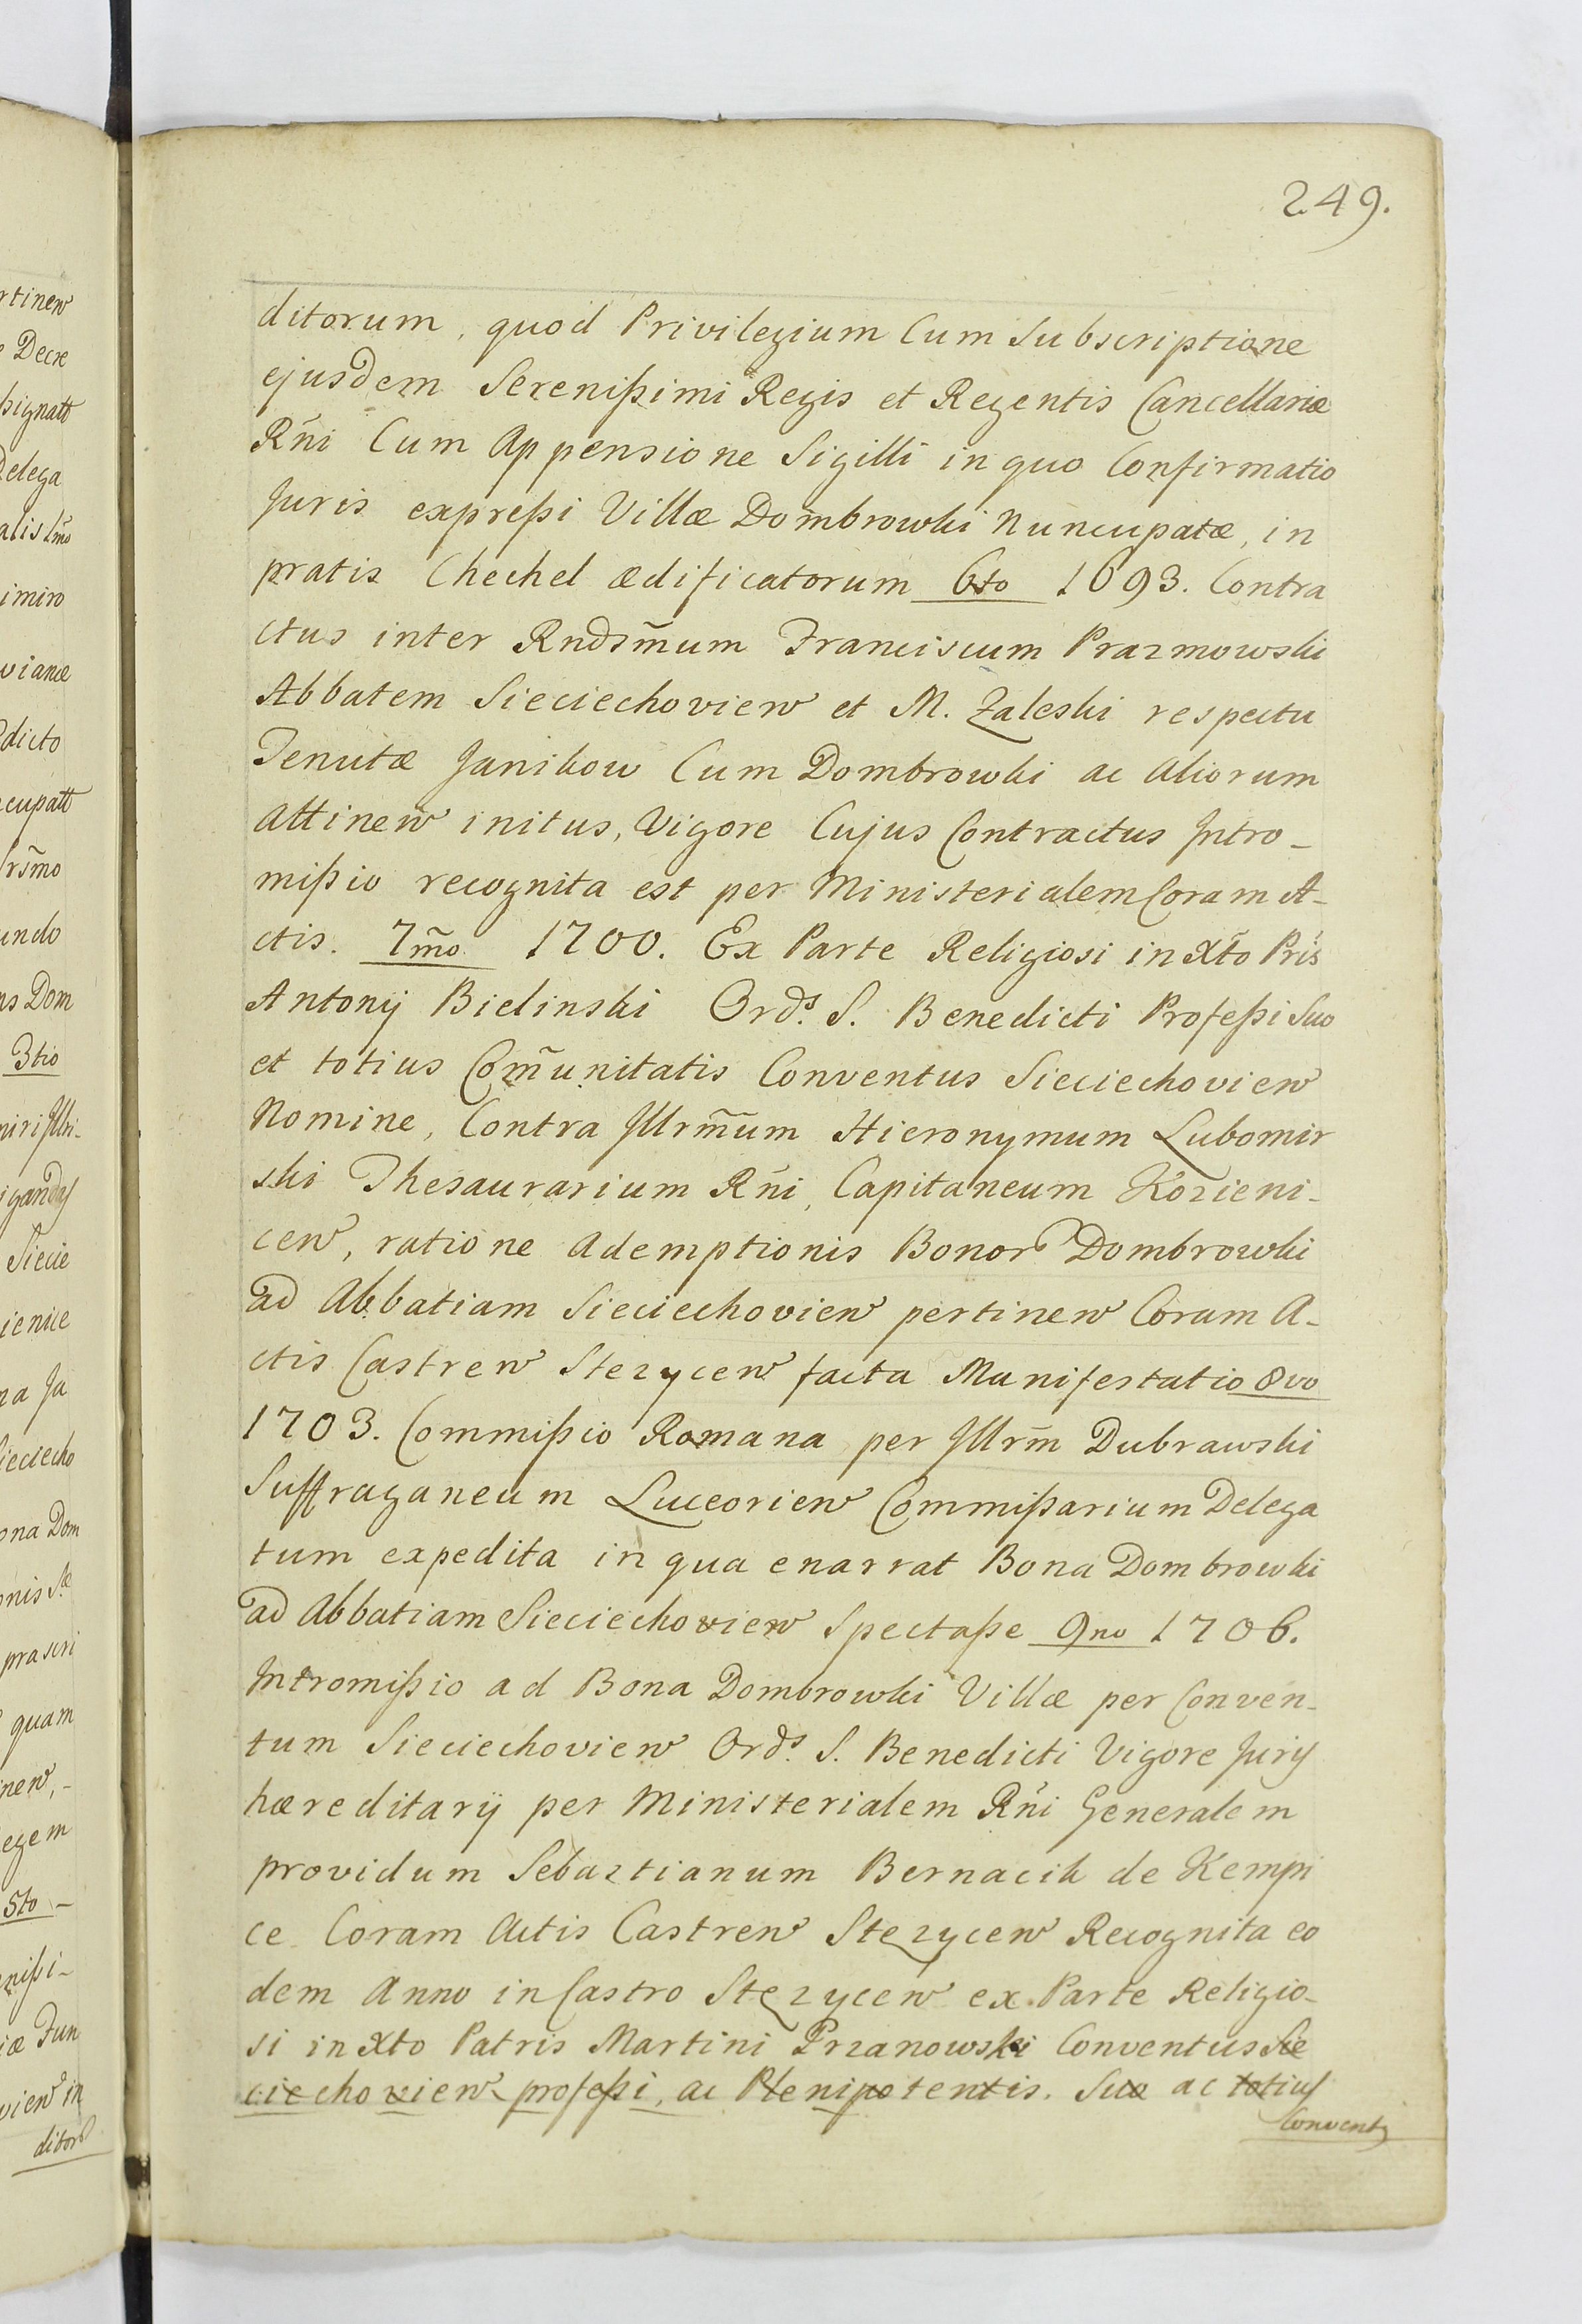 249.
ditorum, quod Privilegium Cum Subscriptione
ejusdem Serenißimi Regis et Regentis Cancellariæ
Rñi Cum Appensione Sigilli in quo Confirmatio
Juris expreßi Villæ Dombrowki Nuncupatæ, in
pratis Chechel ædificatorum 6to 1693. Contra
ctus inter Rndsm̃um Franciscum Prazmowski
Abbatem Sieciechovien͠ et M. Zaleski respectu
Tenutæ Janikow Cum Dombrowki ac Aliorum
Attinen͠ initus, Vigore Cujus Contractus Intro-
mißio recognita est per Ministerialem Coram A-
ctis. 7mo 1700. Ex Parte Religiosi in Xto Pris
Antonij Bielinski Ords. S. Benedicti Profeßi Suo
et totius Com̃unitatis Conventus Sieciechovien͠
Nomine, Contra Illrm̃um Hieronymum Lubomir
ski Thesaurarium Rñi, Capitaneum Kozieni-
cen͠, ratione Ademptionis Bonor͠ Dombrowki
ad Abbatiam Sieciechovien͠ pertinen͠ Coram A-
ctis Castren͠ Stezycen͠ facta Manifestatio 8vo
1703. Commißio Romana per Illrm̃ Dubrawski
Suffraganeum Luceorien͠ Commißarium Delega
tum expedita in qua enarrat Bona Dombrowki
ad Abbatiam Sieciechovien͠ Spectaße 9no 1706.
Intromißio ad Bona Dombrowki Villæ per Conven-
tum Sieciechovien͠ Ords. S. Benedicti Vigore Juris
hæreditarij per Ministerialem Rñi Generalem
providum Sebastianum Bernacik de Kempi
ce Coram Actis Castren͠ Stezycen͠ Recognita eo
dem Anno in Castro Stezycen͠ ex Parte Religio-
si in Xto Patris Martini Przanowski Conventus Sie
ciechovien͠ profeßi, ac Plenipotentis. Suo ac totius
Convents